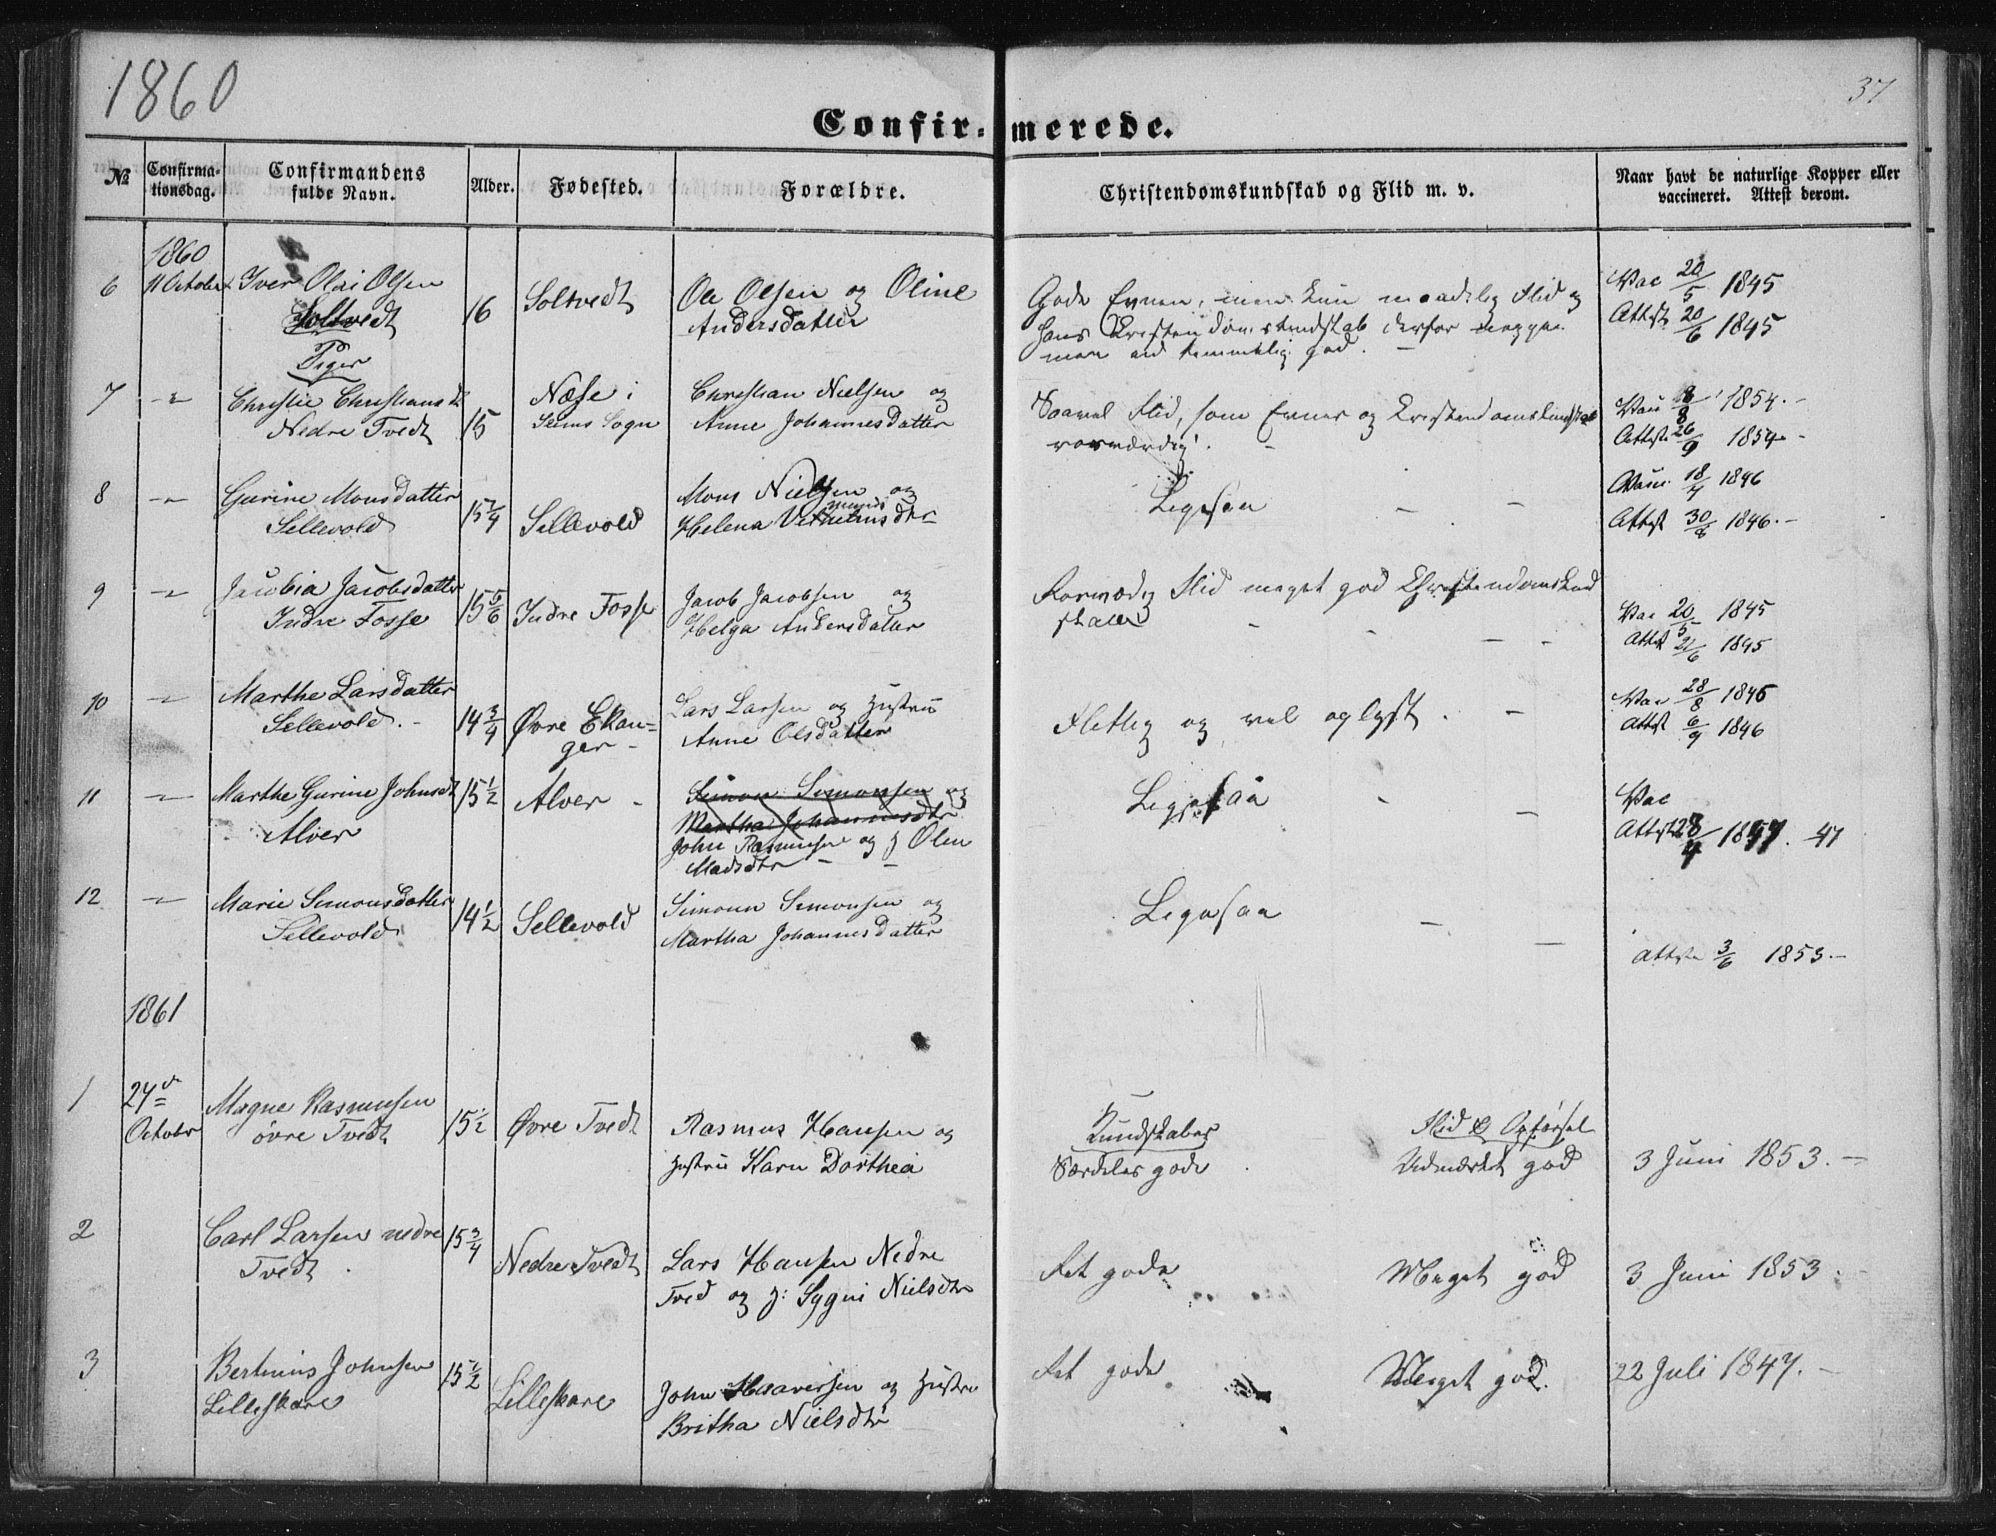 1860
37
Confir- merede.
№
Confirma-
tionsdag.
Confirmandens
fulde Navn.
Alder.
Fødested.
Forældre.
Christendomskundskab og Flid m. v.
Naar havt de naturlige Kopper eller
vaccineret. Attest derom.
1860
6 11 October Iver Olai Olsen
Soltvedt
16 Soltvedt
Ole Olsen og Oline
Andersdatter
Gode Evner, men kun maadelig Flid og
hans Kristendomskundskab derfor neppe
mere end temmelig god. -
Vac 20/5 1845
Attest 20/6 1845
Piger
7 -"- Christie Christiansdt
Nedre Tvedt
15
Næse i
Seims Sogn
Christian Nielsen og
Anne Johannesdatter
Saavel Flid, som Evner og Kristendomskundskab
rosværdig. -
Vacc 8/8 1854.-
Attest 26/9 1854.-
8 -"- Gurine Monsdatter
Sellevold
15 1/4 Sellevold
Mons Nielsen og
Helena Vilhelmsdtr
Ligesaa - -
Vacc 18/7 1846
Attest 30/8 1846.-
9 -"- Jacobia Jacobsdatter
Indre Fosse
15 5/6 Indre Fosse
Jacob Jacobsen og
Helga Andersdatter
Rosværdig Flid meget god Christendomskund
skab - - - -
Vac 20/5 1845
Attest 21/6 1845
10 -"- Marthe Larsdatter
Sellevold.-
14 3/4 Øvre Ekan=
ger -
Lars Larsen og Hustru
Anne Olsdatter
Flittig og vel oplyst. -
Vac 28/8 1846
Attest 6/9 1846
11 -"- Marthe Gurine Johnsdt
Alver
15 1/2 Alver -
Simon Simonsen og
Martha Johannesdtr
John Rasmusen og H Olen
Madsdtr - -
Ligesaa - -
Vac
Attest 28/4 1847. 47
12 -"- Marie Simonsdatter
Sellevold
14 1/2 Sellevold
Simonn Simonsen og
Martha Johannesdatter
Ligesaa - -
Attest 3/6 1853.-
1861
1 24de
October
Magne Rasmusen
øvre Tvedt
15 1/2 Øvre Tvedt
Rasmus Hansen og
Hustru Karn Dorthea
Kundskaber
Særdeles gode
Flid & Opførsel
Udmærket god
3 Juni 1853.-
2 Carl Larsen nedre
Tvedt
15 3/4 Nedre Tvedt
Lars Hansen Nedre
Tved og H: Sygni Nielsdtr
Ret gode
Meget god
3 Juni 1853.-
3 Bertinius Johnsen
Lilleskare
15 1/2 Lilleskare
John Haaversen og Hustru
Britha Nielsdtr
Ret gode
Meget god.
22 Juli 1847.-